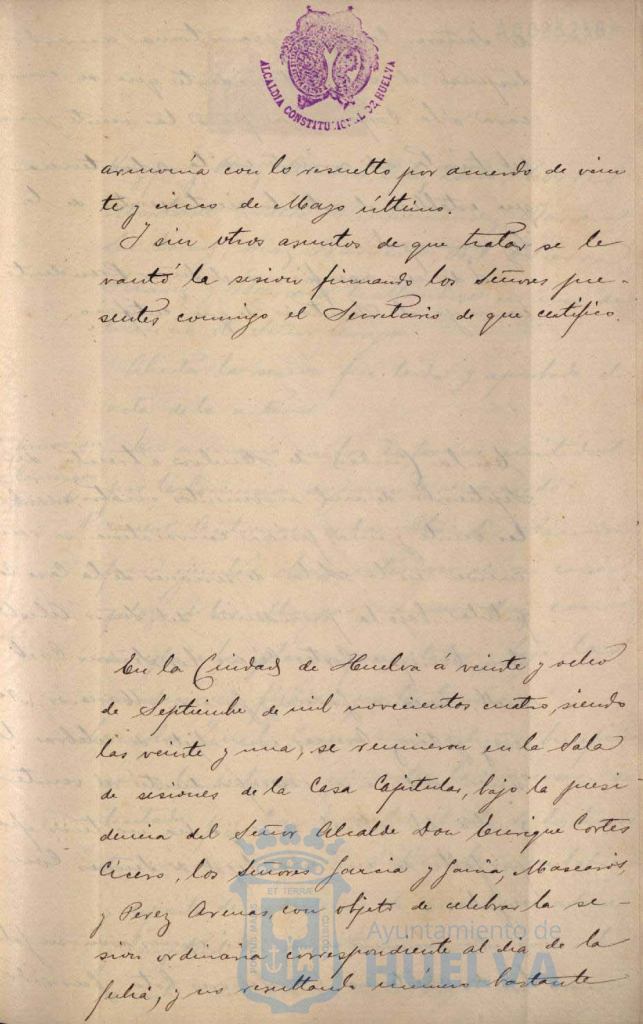 ALCALDIA CONSTITUCIONAL DE HUELVA
armonía con lo resuelto por acuerdo de vein
te y cinco de Mayo último.
Y sin otros asuntos de que tratar se le
vantó la sesion firmando los Señores pre-
sentes conmigo el Secretario de que certifico.
En la Ciudad de Huelva á veinte y ocho
de Septiembre de mil novecientos cuatro, siendo
las veinte y una, se reunieron en la Sala
de sesiones de la Casa Capitular, bajo la presi
dencia del Señor Alcalde Don Enrique Cortes
Cícero, los Señores Garcia y Garcia, Mascarós,
y Perez Arenas, con objeto de celebrar la se-
sion ordinaria correspondiente al dia de la
fecha, y no resultando número bastante
Ayuntamiento de
HUELVA